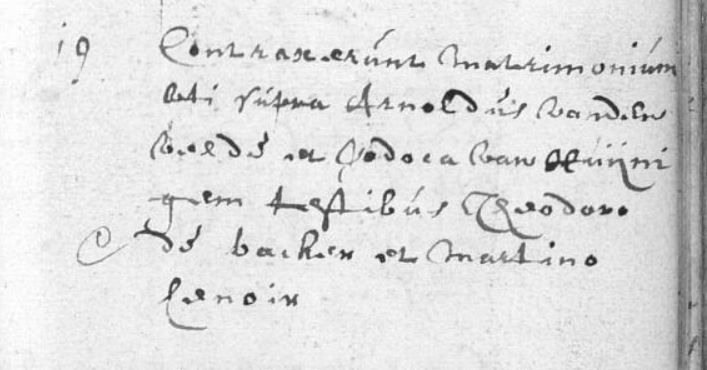 19 Contraxerunt matrimonium
uti supra Arnoldus vanden
velde et Jodoca van Huijni
gem testibus Theodoro
de backer et Martino
Lenoir